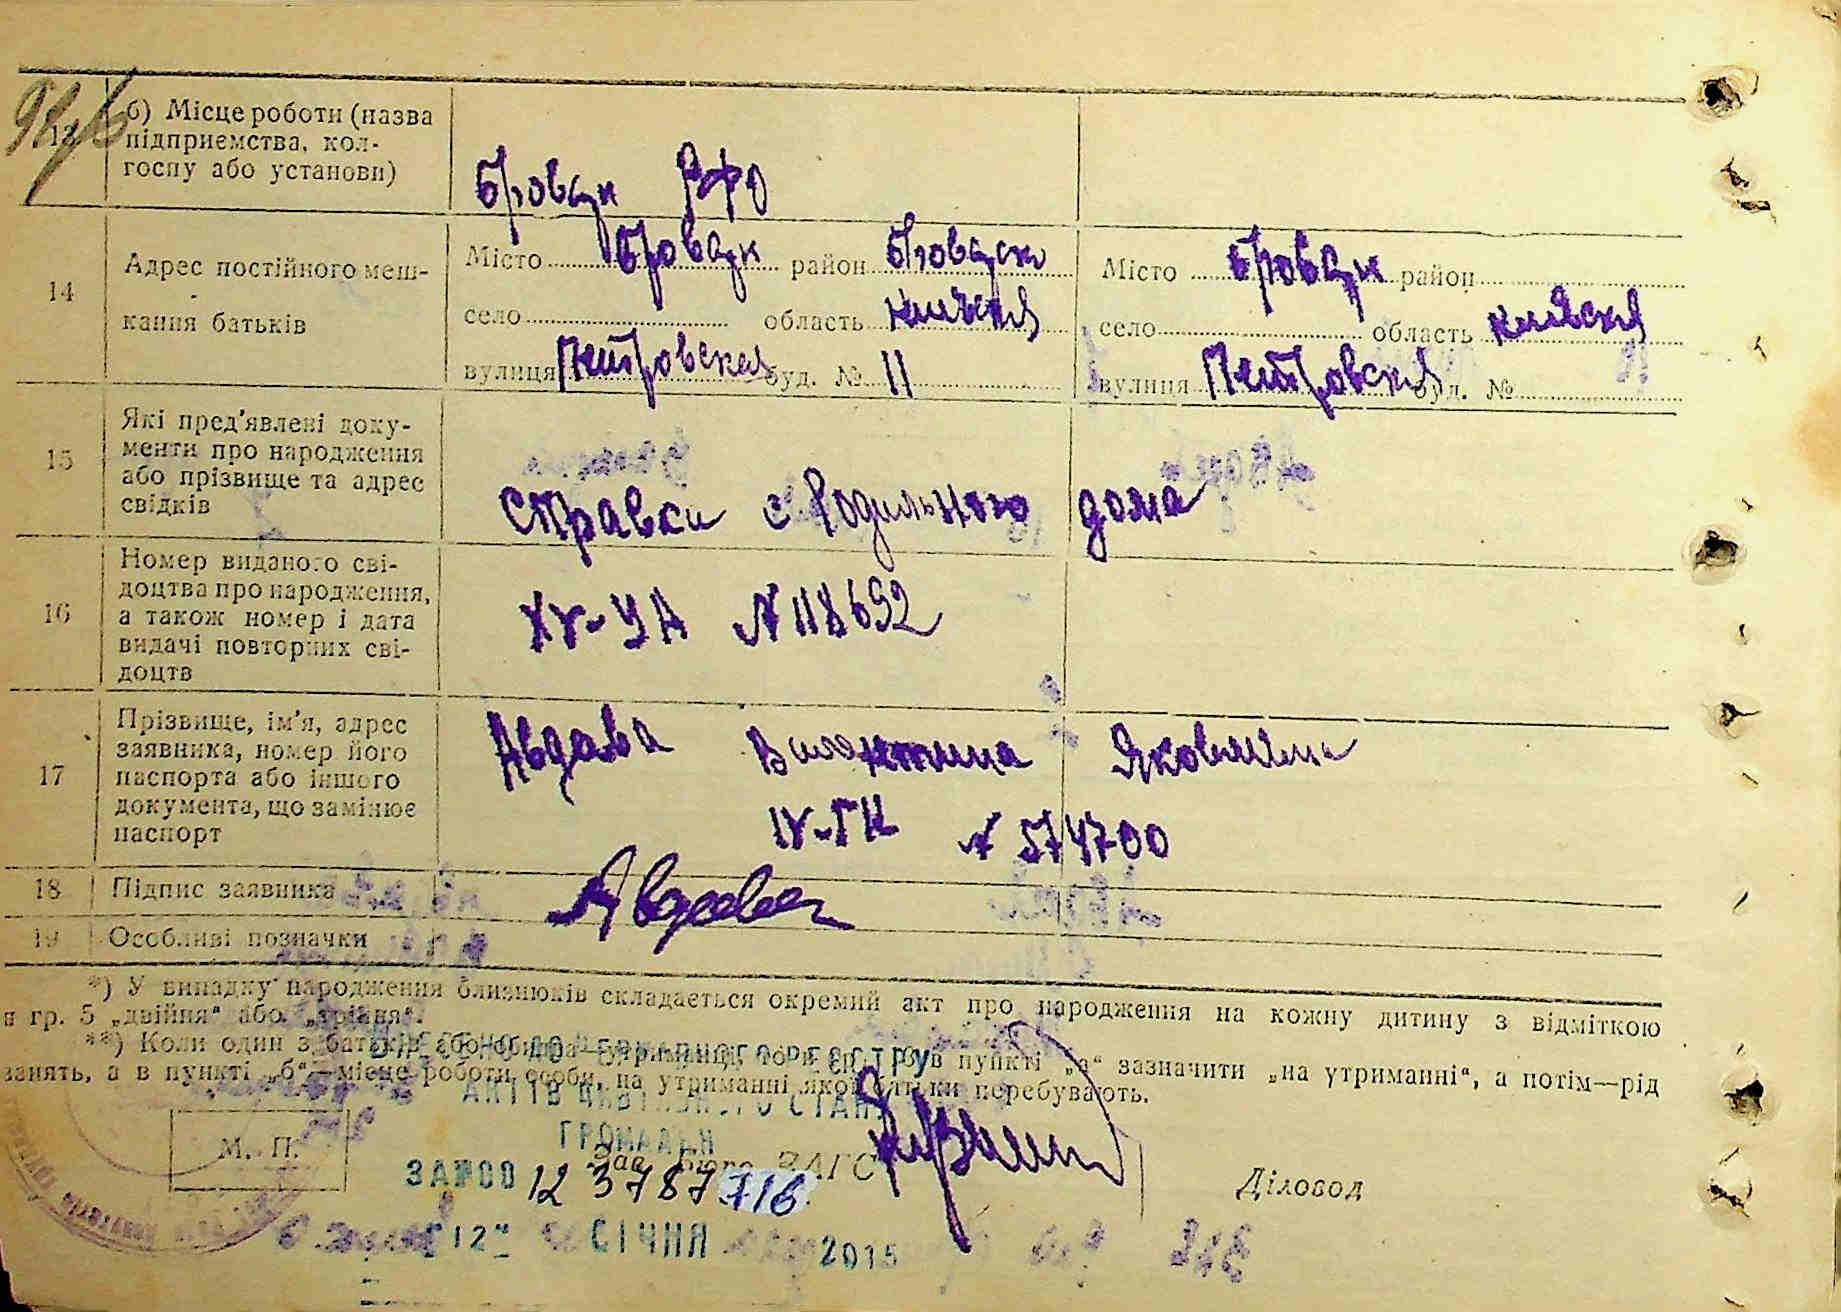 13
б) Місце роботи (назва
підприємства, кол-
госпу або установи)
Бровары РФО
14
Адрес постійного меш-
кання батьків
Місто Бровары район Броварск
село область Киевская
вулиця Петровская буд. № 11
Місто Бровары район
село область Киевская
вулиця Петровская буд. №
15
Які пред'явлені доку-
менти про народження
або прізвище та адрес
свідків
Справки с Родильного дома
16
Номер виданого сві-
доцтва про народження,
а також номер і дата
видачі повторних сві-
доцтв
ХУ-УА № 118692
17
Прізвище, ім'я, адрес
заявника, номер його
паспорта або іншого
документа, що замінює
паспорт
Авдеева Валентина Яковлевна
№ 574700
18
Підпис заявника
Авдеева
19
Особливі позначки
*) У випадку народження близнюків складається окремий акт про народження на кожну дитину з відміткою
в гр. 5 „двійня“ або „трійня“.
**) Коли один з батьків в пункті „а“ зазначити „на утриманні“, а потім—рід
занять, а в пункті „б“—місце роботи особи, на утриманні якої батьки перебувають.
ДЕРЖАВНОГО РЕЄСТРУ
АКТІВ ЦИВІЛЬНОГО СТАНУ
ГРОМАДЯН
М. П.
Зав. Бюро ЗАГС
Діловод
ЗА №00 12 3787 716
"12" СІЧНЯ 2015